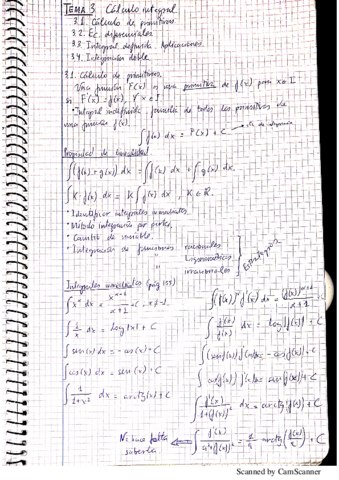 TEMA 3 Cálculo integral
3.1. Cálculo de primitivas
3.2. Ec. diferenciales
3.3. Integral definida. Aplicaciones
3.4. Integración doble
3.1. Cálculo de primitivas.
Una función F(x) es una primitiva de f(x) para x∈I
si F'(x) = f(x), ∀x∈I
• Integral indefinida: familia de todas las primitivas de
una función f(x).
∫f(x) dx = F(x) + C → cte de integración
Propiedad de linealidad
∫(f(x)+g(x)) dx = ∫f(x) dx + ∫g(x) dx.
∫K·f(x) dx = K∫f(x) dx, K∈R.
• Identificar integrales inmediatas
• Método integración por partes.
• Cambio de variable.
• Integración de funciones racionales
" trigonométricas
" irracionales
Estrategias
Integrales inmediatas (pág 155)
∫xⁿ dx = xⁿ⁺¹/α+1 + C, α≠-1 ∫(f(x))ⁿ f'(x) dx = (f(x))ⁿ⁺¹/α+1 + C
∫1/x dx = log|x| + C ∫f'(x)/f(x) dx = log|f(x)| + C
∫sen(x) dx = -cos(x) + C ∫(sen f(x)) f'(x) dx = -cos f(x) + C
∫cos(x) dx = sen(x) + C ∫cos f(x) f'(x) dx = sen f(x) + C
∫1/1+x² dx = arctg(x) + C ∫f'(x)/1+(f(x))² dx = arctg f(x) + C
No hace falta ⟸ ∫f'(x)/a²+(f(x))² = 1/a arctg(f(x)/a) + C
saberla
Scanned by CamScanner